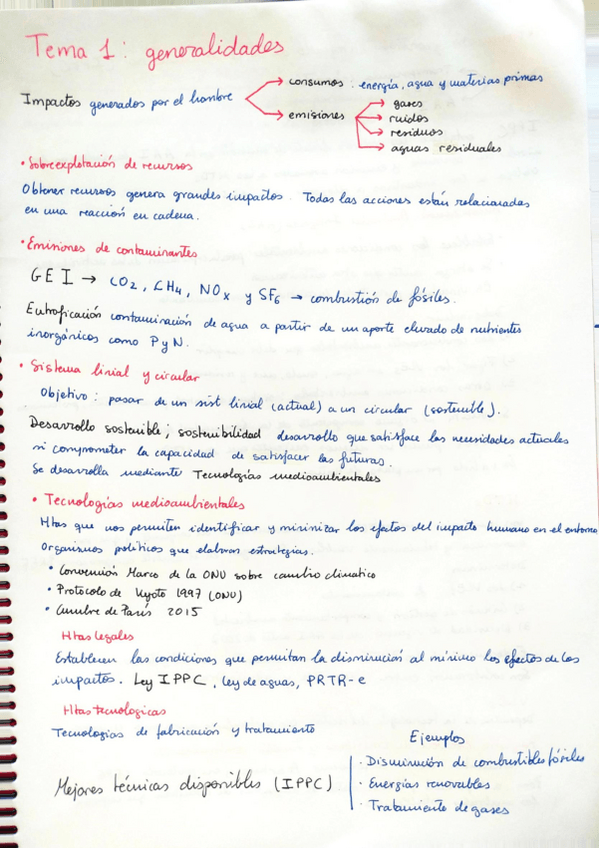 Tema 1: generalidades
Impactos generados por el hombre
consumos: energía, agua y materias primas
emisiones
gases
ruidos
residuos
aguas residuales
• Sobreexplotación de recursos
Obtener recursos genera grandes impactos. Todas las acciones están relacionadas
en una reacción en cadena.
• Emisiones de contaminantes
GEI → CO2, CH4, NOx y SF6 → combustión de fósiles.
Eutroficación contaminación de agua a partir de un aporte elevado de nutrientes
inorgánicos como P y N.
• Sistema linial y circular
Objetivo: pasar de un sist linial (actual) a un circular (sostenible).
Desarrollo sostenible; sostenibilidad desarrollo que satisface las necesidades actuales
si comprometer la capacidad de satisfacer las futuras.
Se desarrolla mediante Tecnologías medioambientales
• Tecnologías medioambientales
Htas que nos permiten identificar y minimizar los efectos del impacto humano en el entorno
Organismos políticos que elaboran estrategias.
• Convención Marco de la ONU sobre cambio climatico
• Protocolo de Kyoto 1997 (ONU)
• Cumbre de París 2015
Htas legales
Establecen las condiciones que permitan la disminución al mínimo los efectos de los
impactos. Ley IPPC, ley de aguas, PRTR-e
Htas tecnologicas
Tecnologías de fabricación y tratamiento
Mejores técnicas disponibles (IPPC)
Ejemplos
· Disminución de combustibles fósiles
· Energías renovables
· Tratamiento de gases